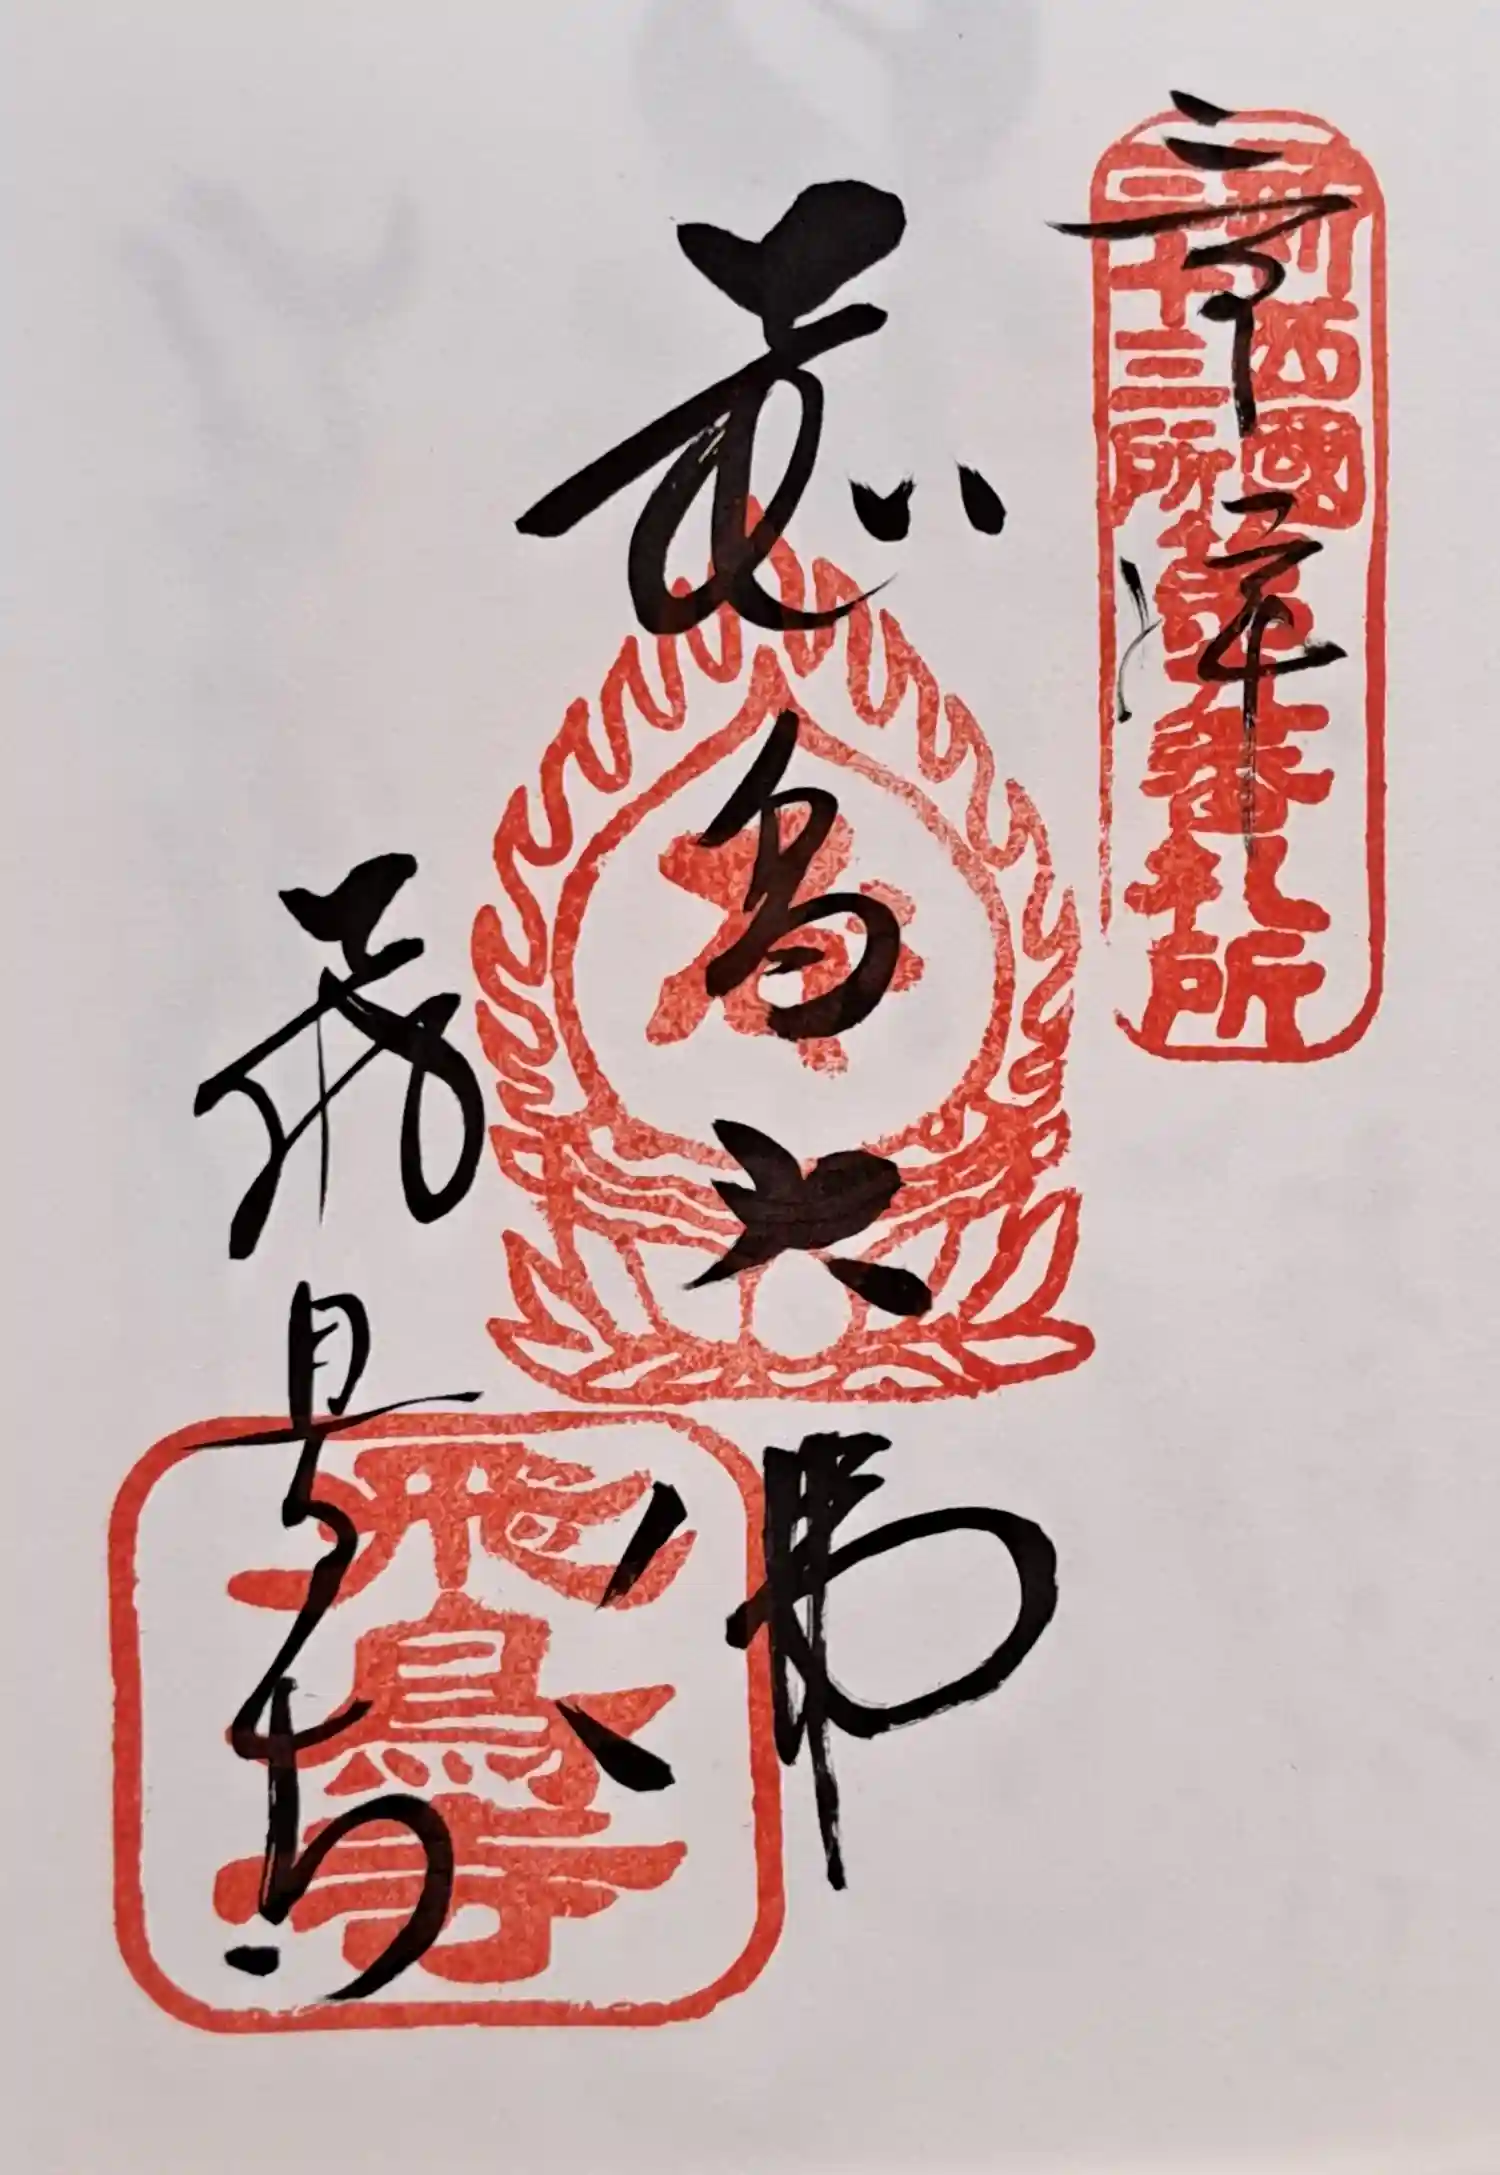 奉拝
新西國
三十三所
第九番札所
飛鳥大佛
飛鳥寺
飛鳥寺